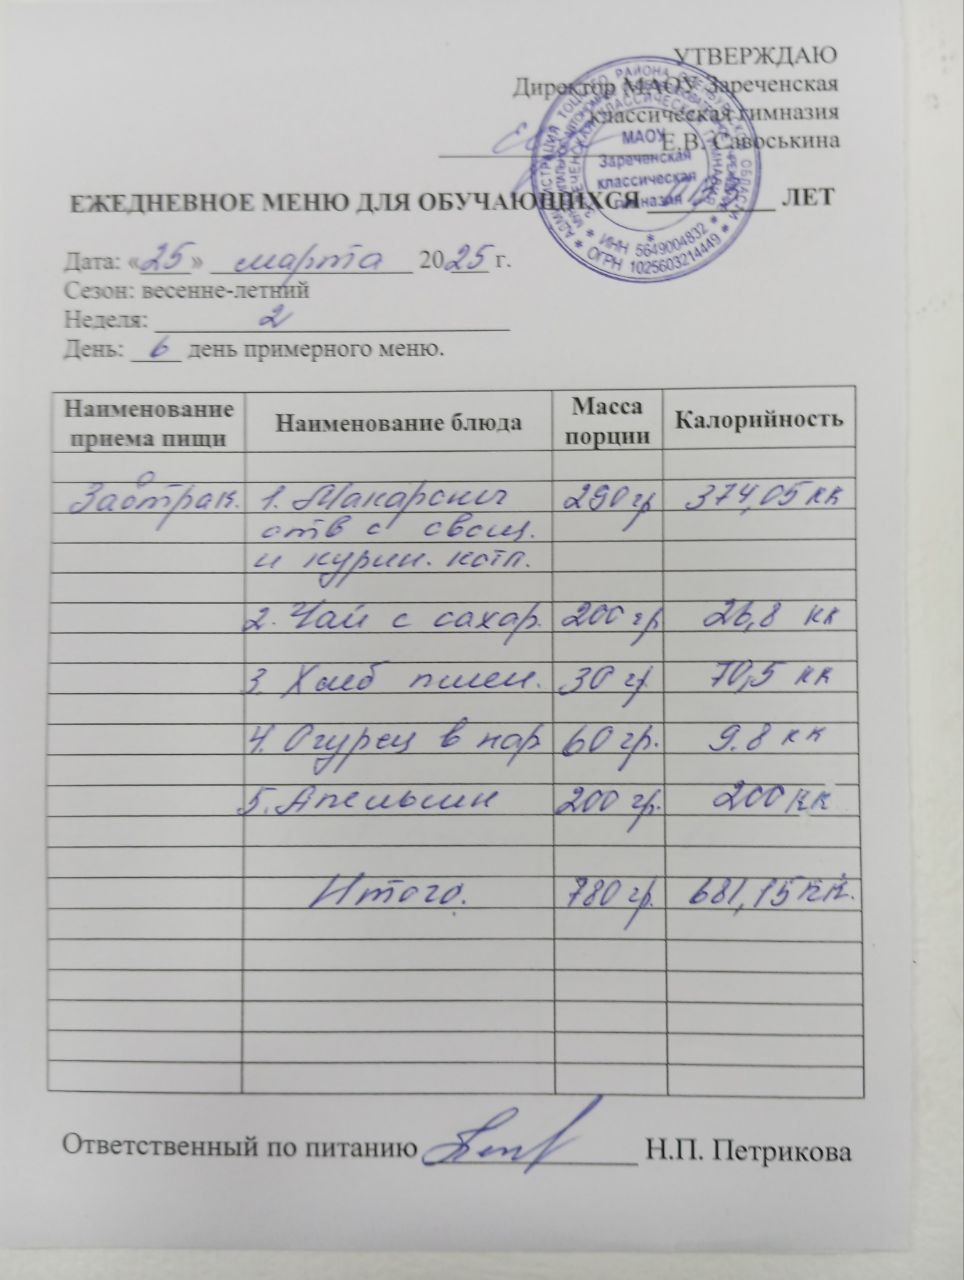 УТВЕРЖДАЮ
Директор МАОУ Зареченская
классическая гимназия
Е.В. Савоськина
МАОУ
Зареченская
классическая
гимназия
* ИНН 5649004832 *
* ОГРН 1025603214449 *
ЕЖЕДНЕВНОЕ МЕНЮ ДЛЯ ОБУЧАЮЩИХСЯ ЛЕТ
Дата: «25» марта 2025 г.
Сезон: весенне-летний
Неделя: 2
День: 6 день примерного меню.
Наименование приема пищи Наименование блюда Масса порции Калорийность
Завтрак. 1. Макароны 290 гр 374,05 кк
отв с овощ.
и курин. котл.
2. Чай с сахар. 200 гр 26,8 кк
3. Хлеб пшен. 30 гр. 70,5 кк
4. Огурец в нар 60 гр. 9.8 кк
5. Апельсин 200 гр. 200 кк
Итого. 780 гр. 681,15 кк.
Ответственный по питанию Н.П. Петрикова